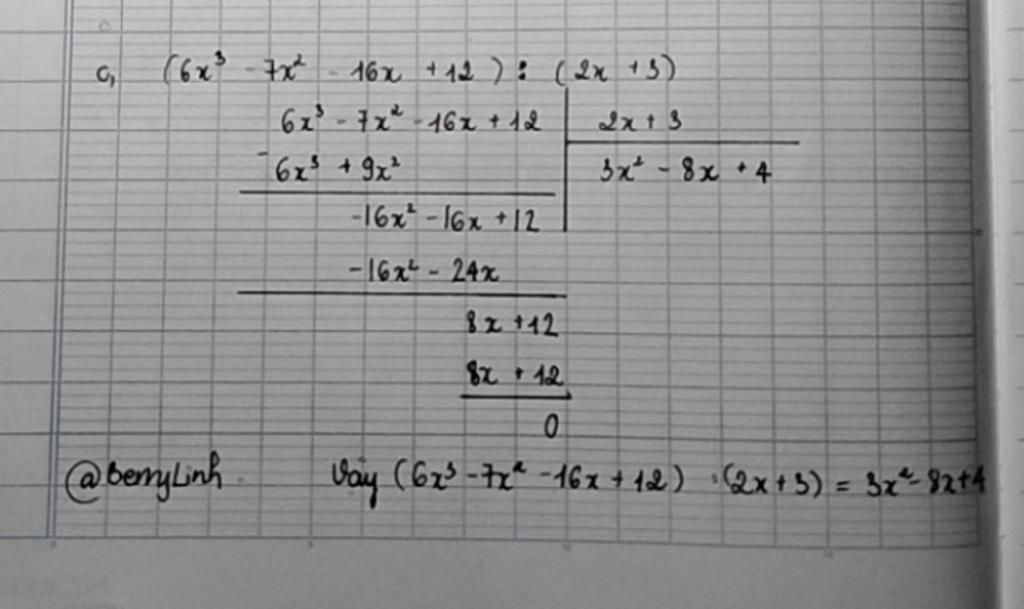 c, (6x³ - 7x² - 16x + 12) : (2x + 3)
6x³ - 7x² - 16x + 12 2x + 3
- 6x³ + 9x² 3x² - 8x + 4
-16x² - 16x + 12
-16x² - 24x
8x + 12
8x + 12
0
@BerryLinh Vậy (6x³ - 7x² - 16x + 12) : (2x + 3) = 3x² - 8x + 4